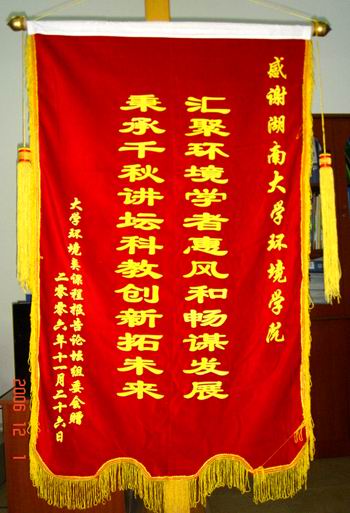 感谢湖南大学环境学院
汇聚环境学者惠风和畅谋发展
秉承千秋讲坛科教创新拓未来
大学环境类课程报告论坛组委会赠
二零零六年十一月二十六日
2006 12 1